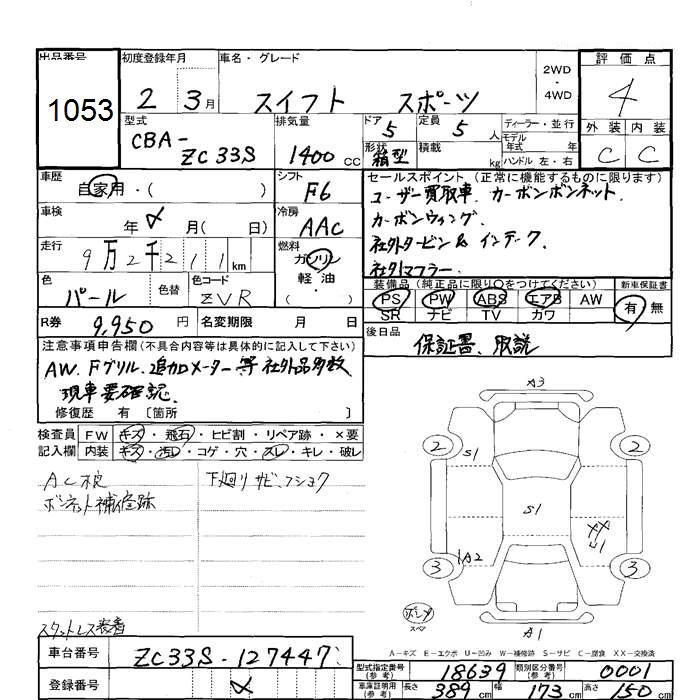 出品番号
1053
初度登録年月
2 3月
車名・グレード
スイフト スポーツ
2WD
・
4WD
評価点
4
外装 内装
C C
型式
CBA-
ZC33S
排気量
1400 cc
ドア
5
定員
5 人
形状
箱型
積載
kg
ディーラー・並行
モデル
年式 年
ハンドル 左・右
車歴
自家用・( )
シフト
F6
車検
年 月( 日)
冷房
AAC
走行
9万2千211km
燃料
ガソリン
軽油
( )
色
パール
色替
色コード
ZVR
R券
9,950 円
名変期限 月 日
セールスポイント (正常に機能するものに限ります)
ユーザー買取車、カーボンボンネット、
カーボンウィング、
社外タービン&インテーク、
社外マフラー、
装備品(純正品に限り○をつけてください)
新車保証書
PS PW ABS エアB AW
SR ナビ TV カワ
有・無
後日品
保証書、取説
注意事項申告欄(不具合内容等は具体的に記入して下さい)
AW、Fグリル、追加メーター等社外品多数
現車要確認、
修復歴 有 〔箇所 〕
検査員
記入欄
FW キズ・飛石・ヒビ割・リペア跡・×要
内装 キズ・汚レ・コゲ・穴・スレ・キレ・破レ
AC不良
ボンネット補修跡
下廻りサビ、フショク
スタットレス装着
A3
2
2
S1
S1
XX
U1
A2
3
3
A1
スペア
A-キズ E-エクボ U-凹み W-補修跡 S-サビ C-腐食 XX-交換済
車台番号
ZC33S-127447
登録番号
型式指定番号
(参考)
18639
類別区分番号
(参考)
0001
車庫証明用
(参考)
長さ 389 cm
幅 173 cm
高さ 150 cm